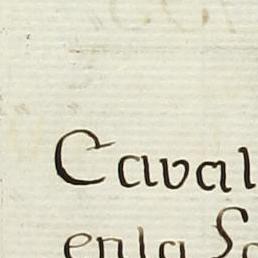 Caval
en la So